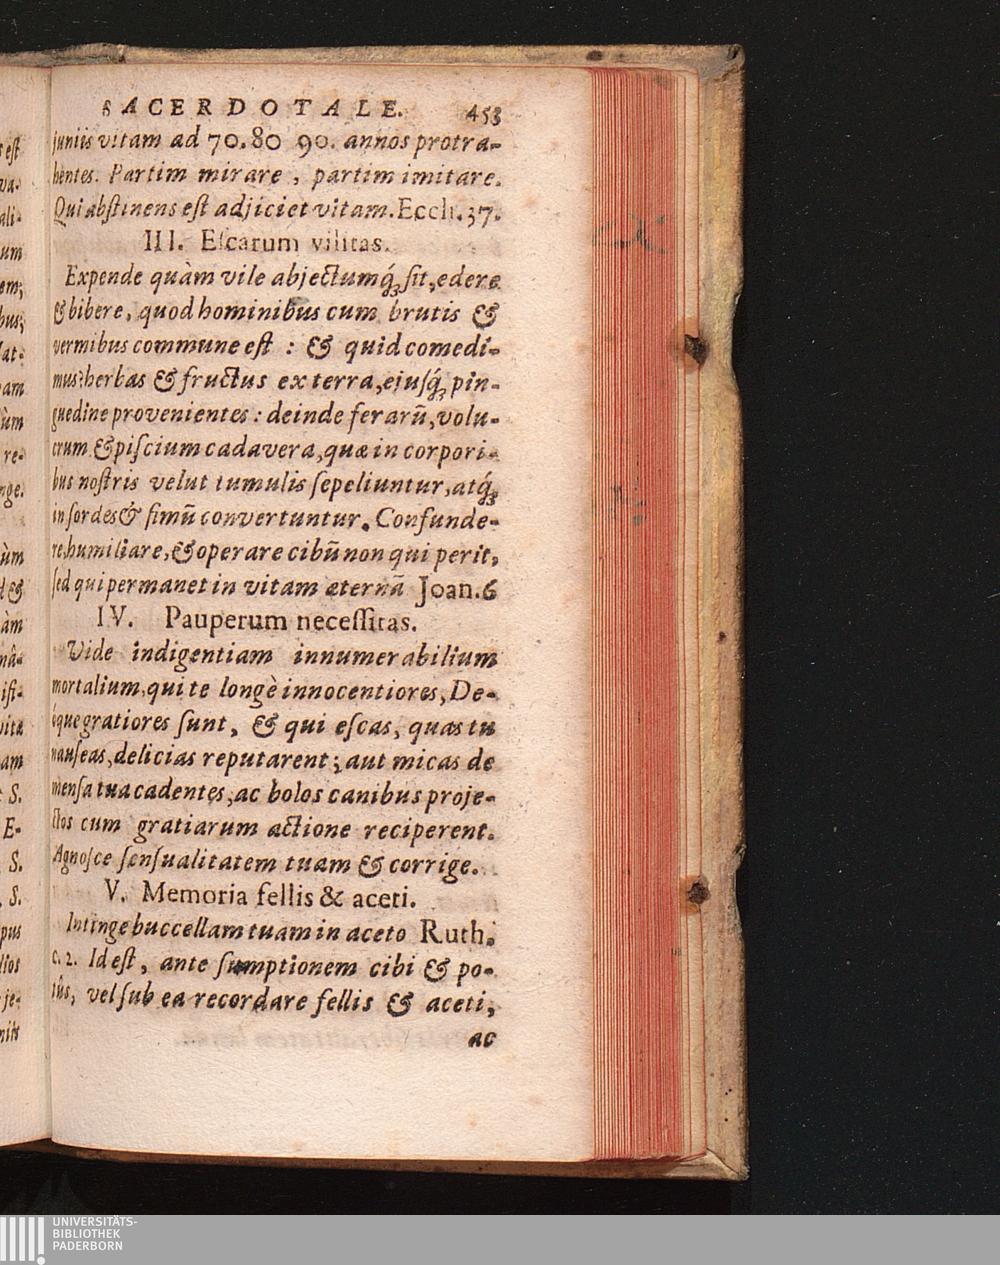 SACERDOTALE. 453
juniis vitam ad 70. 80 90. annos protra-
hentes. Partim mirare, partim imitare.
Qui abstinens est adjiciet vitam. Eccli. 37.
III. Escarum vilitas.
Expende quàm vile abjectumq́ꝫ sit, edere
& bibere, quod hominibus cum brutis &
vermibus commune est : & quid comedi-
mus? herbas & fructus ex terra, ejusq́ꝫ pin-
guedine provenientes : deinde ferarũ, volu-
crum & piscium cadavera, quæ in corpori-
bus nostris velut tumulis sepeliuntur, atq́ꝫ
in sordes & fimũ convertuntur. Confunde-
re, humiliare, & operare cibũ non qui perit,
sed qui permanet in vitam æternã Joan. 6
IV. Pauperum necessitas.
Vide indigentiam innumerabilium
mortalium, qui te longè innocentiores, De-
óque gratiores sunt, & qui escas, quas tu
nauseas, delicias reputarent ; aut micas de
mensa tua cadentes, ac bolos canibus proje-
ctos cum gratiarum actione reciperent.
Agnosce sensualitatem tuam & corrige.
V. Memoria fellis & aceti.
Intinge buccellam tuam in aceto Ruth.
c. 2. Id est, ante sumptionem cibi & po-
tûs, vel sub ea recordare fellis & aceti,
ac
UNIVERSITÄTS-
BIBLIOTHEK
PADERBORN